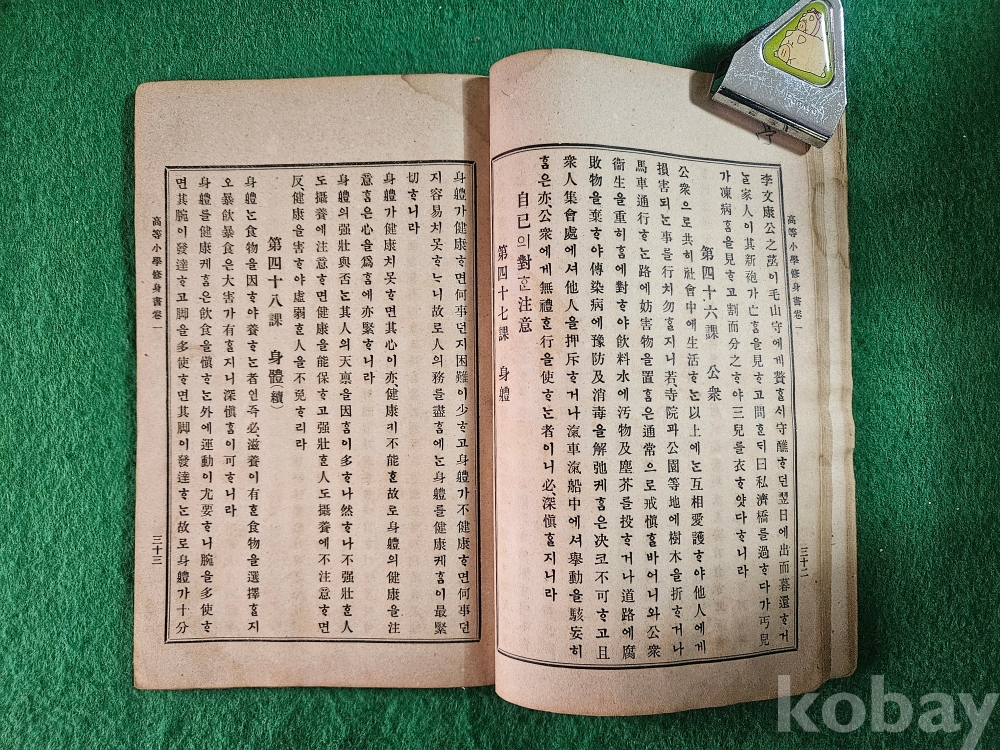 高等小學修身書卷一
三十二
李文康公之茲이毛山守에게贅ᄒᆞᆯᄉᆡ守醮ᄒᆞ던翌日에出而暮還ᄒᆞ거
ᄂᆞᆯ家人이其新袍가亡ᄒᆞᆷ을見ᄒᆞ고問ᄒᆞᆫᄃᆡ曰私濟橋를過ᄒᆞ다가丐兒
가凍病ᄒᆞᆷ을見ᄒᆞ고割而分之ᄒᆞ야三兒를衣ᄒᆞ얏다ᄒᆞ니라
第四十六課 公衆
公衆으로共히社會中에生活ᄒᆞᄂᆞᆫ以上에ᄂᆞᆫ互相愛護ᄒᆞ야他人에게
損害되ᄂᆞᆫ事를行치勿ᄒᆞᆯ지니若寺院과公園等地에樹木을折ᄒᆞ거나
馬車通行ᄒᆞᄂᆞᆫ路에妨害物을置ᄒᆞᆷ은通常으로戒愼ᄒᆞᆯ바어니와公衆
衞生을重히ᄒᆞᆷ에對ᄒᆞ야飮料水에汚物及塵芥를投ᄒᆞ거나道路에腐
敗物을棄ᄒᆞ야傳染病에豫防及消毒을解弛케ᄒᆞᆷ은决코不可ᄒᆞ고且
衆人集會處에셔他人을押斥ᄒᆞ거나滊車滊船中에셔擧動을駭妄히
ᄒᆞᆷ은亦、公衆에게無禮ᄒᆞᆫ行을使ᄒᆞᄂᆞᆫ者이니必、深愼ᄒᆞᆯ지니라
自己의對ᄒᆞᆫ注意
第四十七課 身體
身體가健康ᄒᆞ면何事던지困難이少ᄒᆞ고身體가不健康ᄒᆞ면何事던
지容易치못ᄒᆞᄂᆞ니故로人의務를盡ᄒᆞᆷ에ᄂᆞᆫ身體를健康케ᄒᆞᆷ이最緊
切ᄒᆞ니라
身體가健康치못ᄒᆞ면其心이亦、健康키不能ᄒᆞᆫ故로身體의健康을注
意ᄒᆞᆷ은心을爲ᄒᆞᆷ에亦緊ᄒᆞ니라
身體의强壯與否ᄂᆞᆫ其人의天禀을因ᄒᆞᆷ이多ᄒᆞ나然ᄒᆞ나不强壯ᄒᆞᆫ人
도攝養에注意ᄒᆞ면健康을能保ᄒᆞ고强壯ᄒᆞᆫ人도攝養에不注意ᄒᆞ면
反、健康을害ᄒᆞ야虛弱ᄒᆞᆫ人을不免ᄒᆞ리라
第四十八課 身體(續)
身體ᄂᆞᆫ食物을因ᄒᆞ야養ᄒᆞᄂᆞᆫ者인즉必、滋養이有ᄒᆞᆫ食物을選擇ᄒᆞᆯ지
오暴飮暴食은大害가有ᄒᆞᆯ지니深愼ᄒᆞᆷ이可ᄒᆞ니라
身體를健康케ᄒᆞᆷ은飮食을愼ᄒᆞᄂᆞᆫ外에運動이尤要ᄒᆞ니腕을多使ᄒᆞ
면其腕이發達ᄒᆞ고脚을多使ᄒᆞ면其脚이發達ᄒᆞᄂᆞᆫ故로身體가十分
高等小學修身書卷一
三十三
kobay